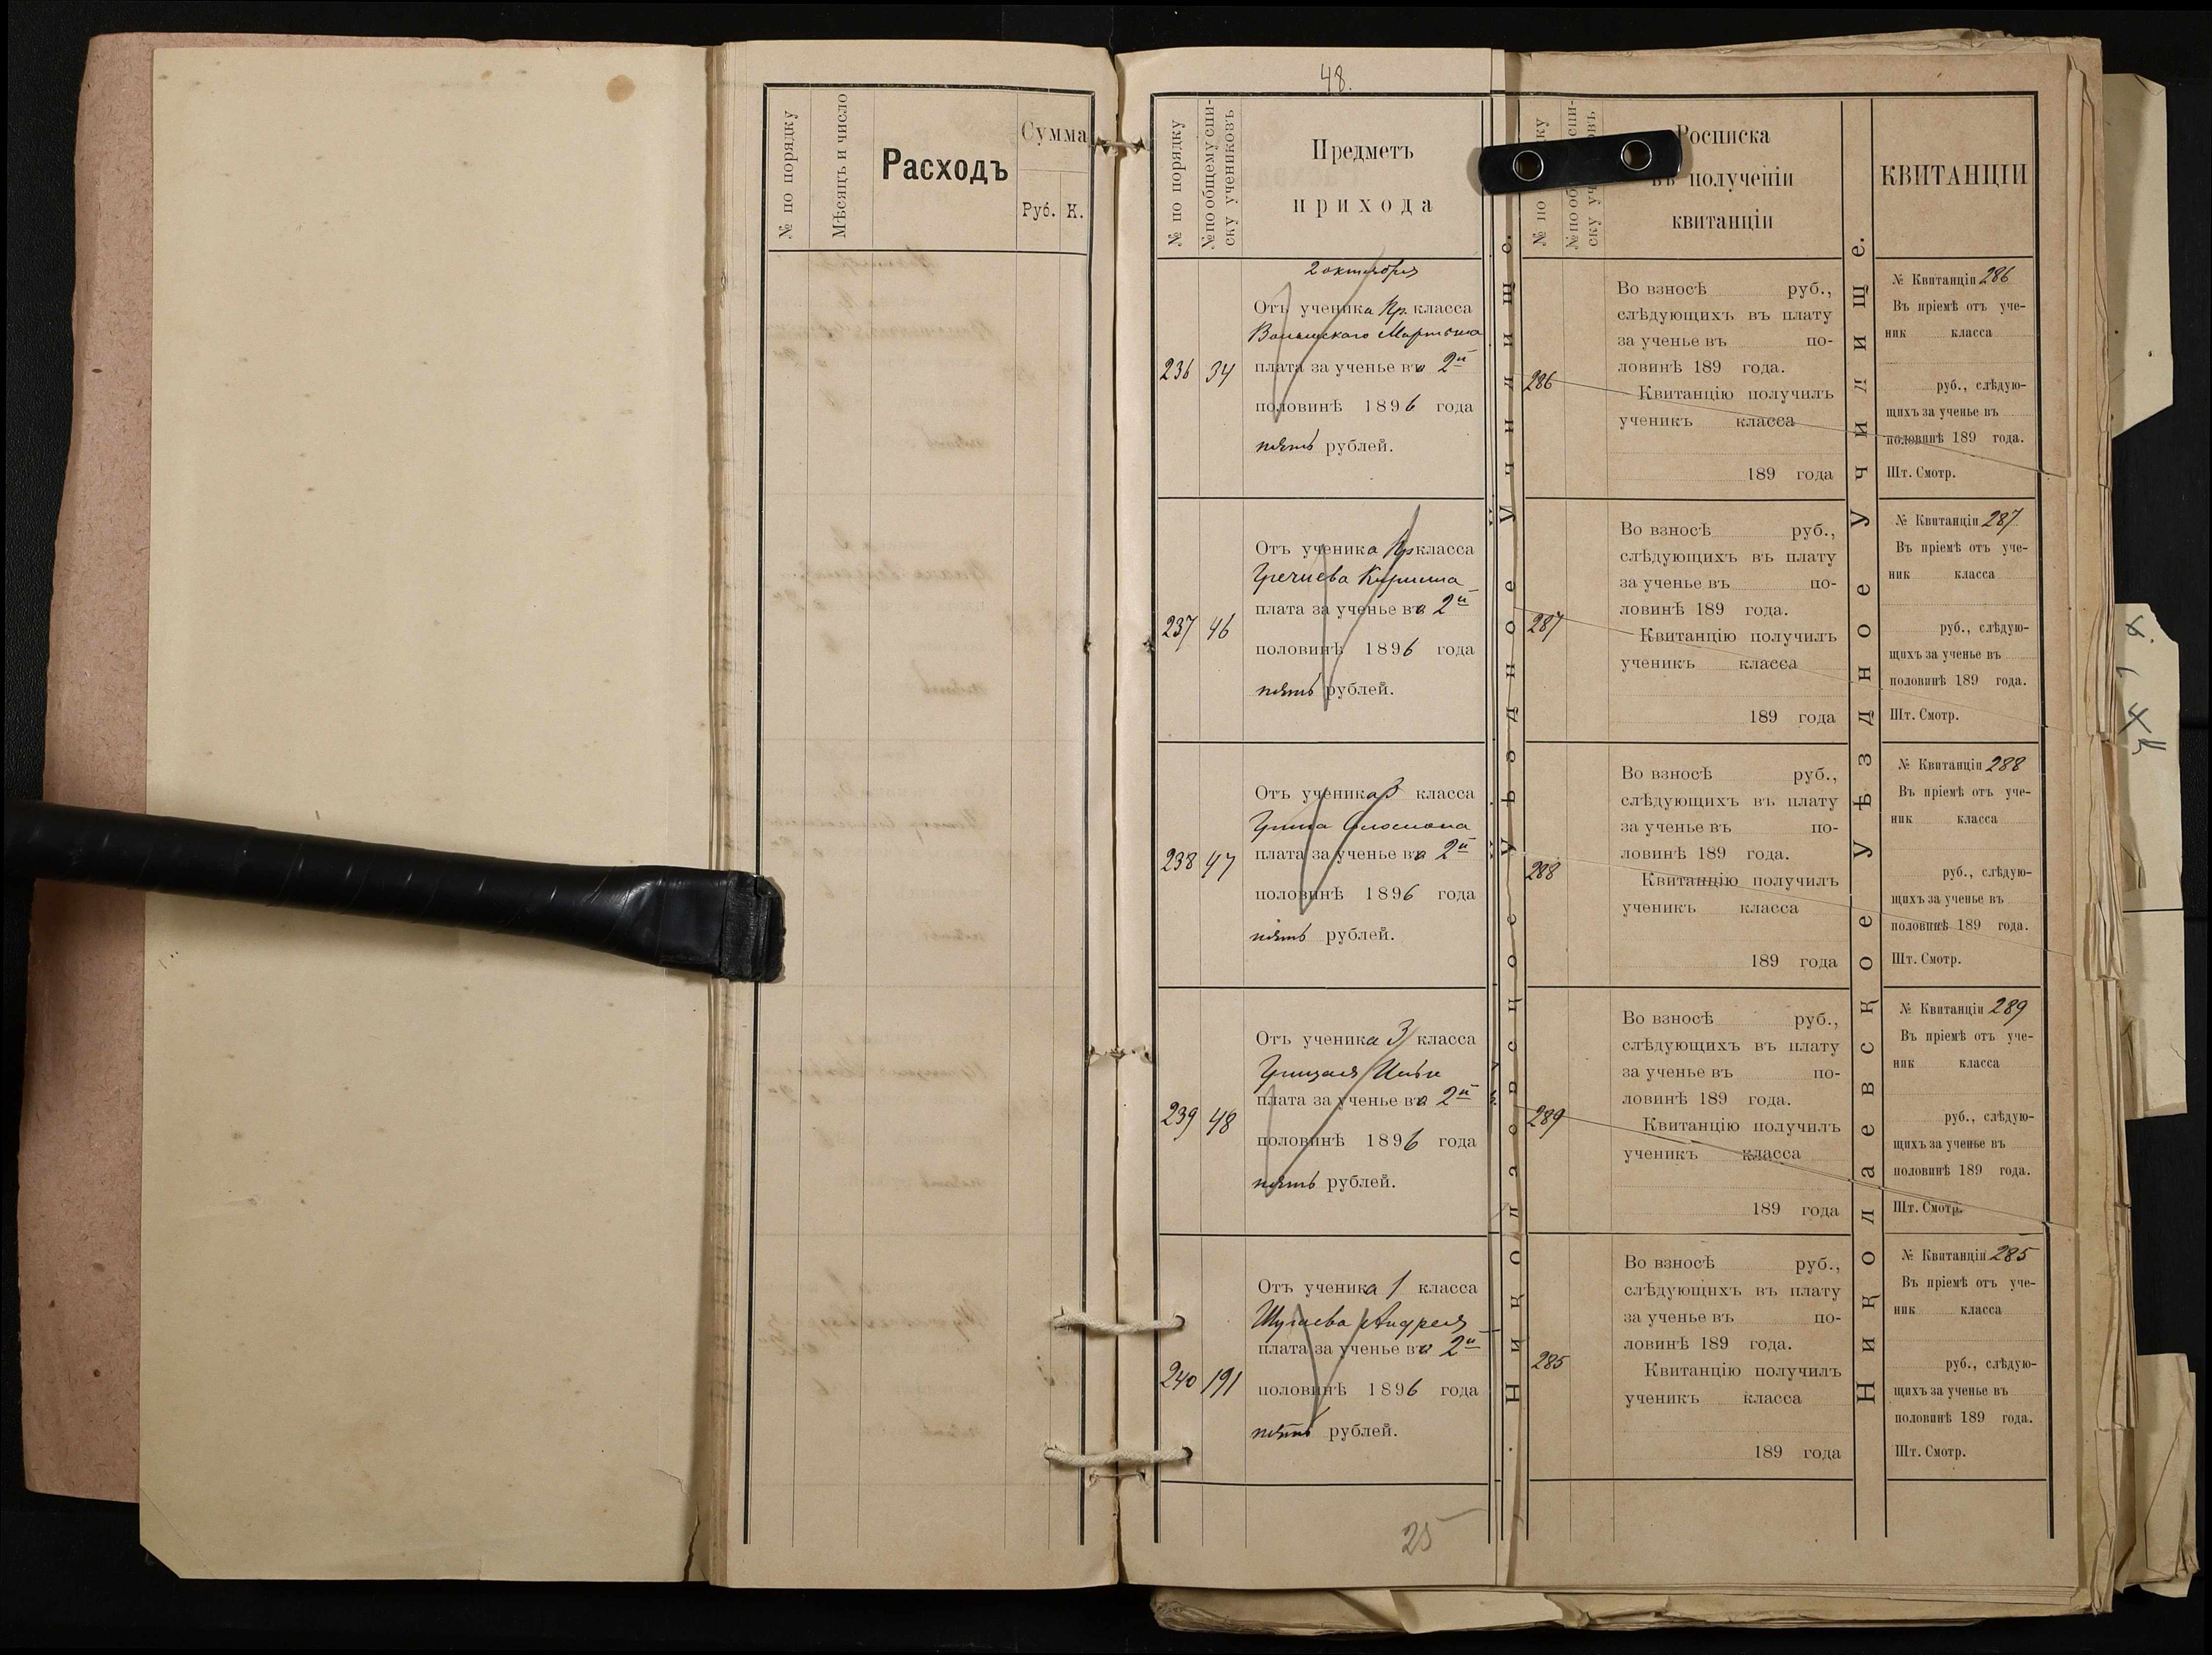 № по порядку
Мѣсяцъ и число
Расходъ
Сумма
Руб. К.
48.
№ по порядку
№ по общему спи-
ску учениковъ
Предметъ
прихода
2 октября
236 34
Отъ ученика Пр. класса
Мартына
плата за ученье въ 2й
половинѣ 1896 года
пять рублей.
237 46
Отъ ученика Пр класса
плата за ученье въ 2й
половинѣ 1896 года
пять рублей.
238 47
Отъ ученика 3 класса
плата за ученье въ 2й
половинѣ 1896 года
пять рублей.
239 48
Отъ ученика 3 класса
плата за ученье въ 2й
половинѣ 1896 года
пять рублей.
240 191
Отъ ученика 1 класса
Андрея
плата за ученье въ 2й
половинѣ 1896 года
пять рублей.
25
Николаевское Уѣздное Училище.
№ по
ку
№ по об
спи-
ску уч
овъ
Росписка
въ полученіи
квитанціи
286
Во взносѣ руб.,
слѣдующихъ въ плату
за ученье въ по-
ловинѣ 189 года.
Квитанцію получилъ
ученикъ класса
189 года
287
Во взносѣ руб.,
слѣдующихъ въ плату
за ученье въ по-
ловинѣ 189 года.
Квитанцію получилъ
ученикъ класса
189 года
288
Во взносѣ руб.,
слѣдующихъ въ плату
за ученье въ по-
ловинѣ 189 года.
Квитанцію получилъ
ученикъ класса
189 года
289
Во взносѣ руб.,
слѣдующихъ въ плату
за ученье въ по-
ловинѣ 189 года.
Квитанцію получилъ
ученикъ класса
189 года
285
Во взносѣ руб.,
слѣдующихъ въ плату
за ученье въ по-
ловинѣ 189 года.
Квитанцію получилъ
ученикъ класса
189 года
Николаевское Уѣздное Училище.
КВИТАНЦІИ
№ Квитанціи 286
Въ пріемѣ отъ уче-
ник класса
руб., слѣдую-
щихъ за ученье въ
половинѣ 189 года.
Шт. Смотр.
№ Квитанціи 287
Въ пріемѣ отъ уче-
ник класса
руб., слѣдую-
щихъ за ученье въ
половинѣ 189 года.
Шт. Смотр.
№ Квитанціи 288
Въ пріемѣ отъ уче-
ник класса
руб., слѣдую-
щихъ за ученье въ
половинѣ 189 года.
Шт. Смотр.
№ Квитанціи 289
Въ пріемѣ отъ уче-
ник класса
руб., слѣдую-
щихъ за ученье въ
половинѣ 189 года.
Шт. Смотр.
№ Квитанціи 285
Въ пріемѣ отъ уче-
ник класса
руб., слѣдую-
щихъ за ученье въ
половинѣ 189 года.
Шт. Смотр.